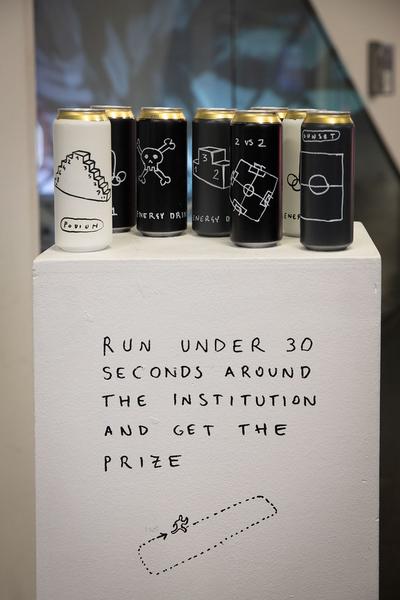 PODIUM
1
ENERGY DRIN
3
2
ENERGY D
2 VS 2
ENER
SUNSET
RUN UNDER 30
SECONDS AROUND
THE INSTITUTION
AND GET THE
PRIZE